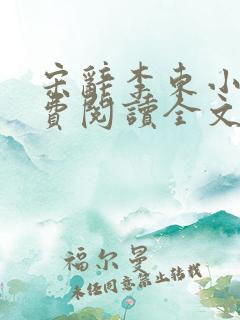 宋辭李東小
費閱讀全文
福尔曼
未经同意禁止转载